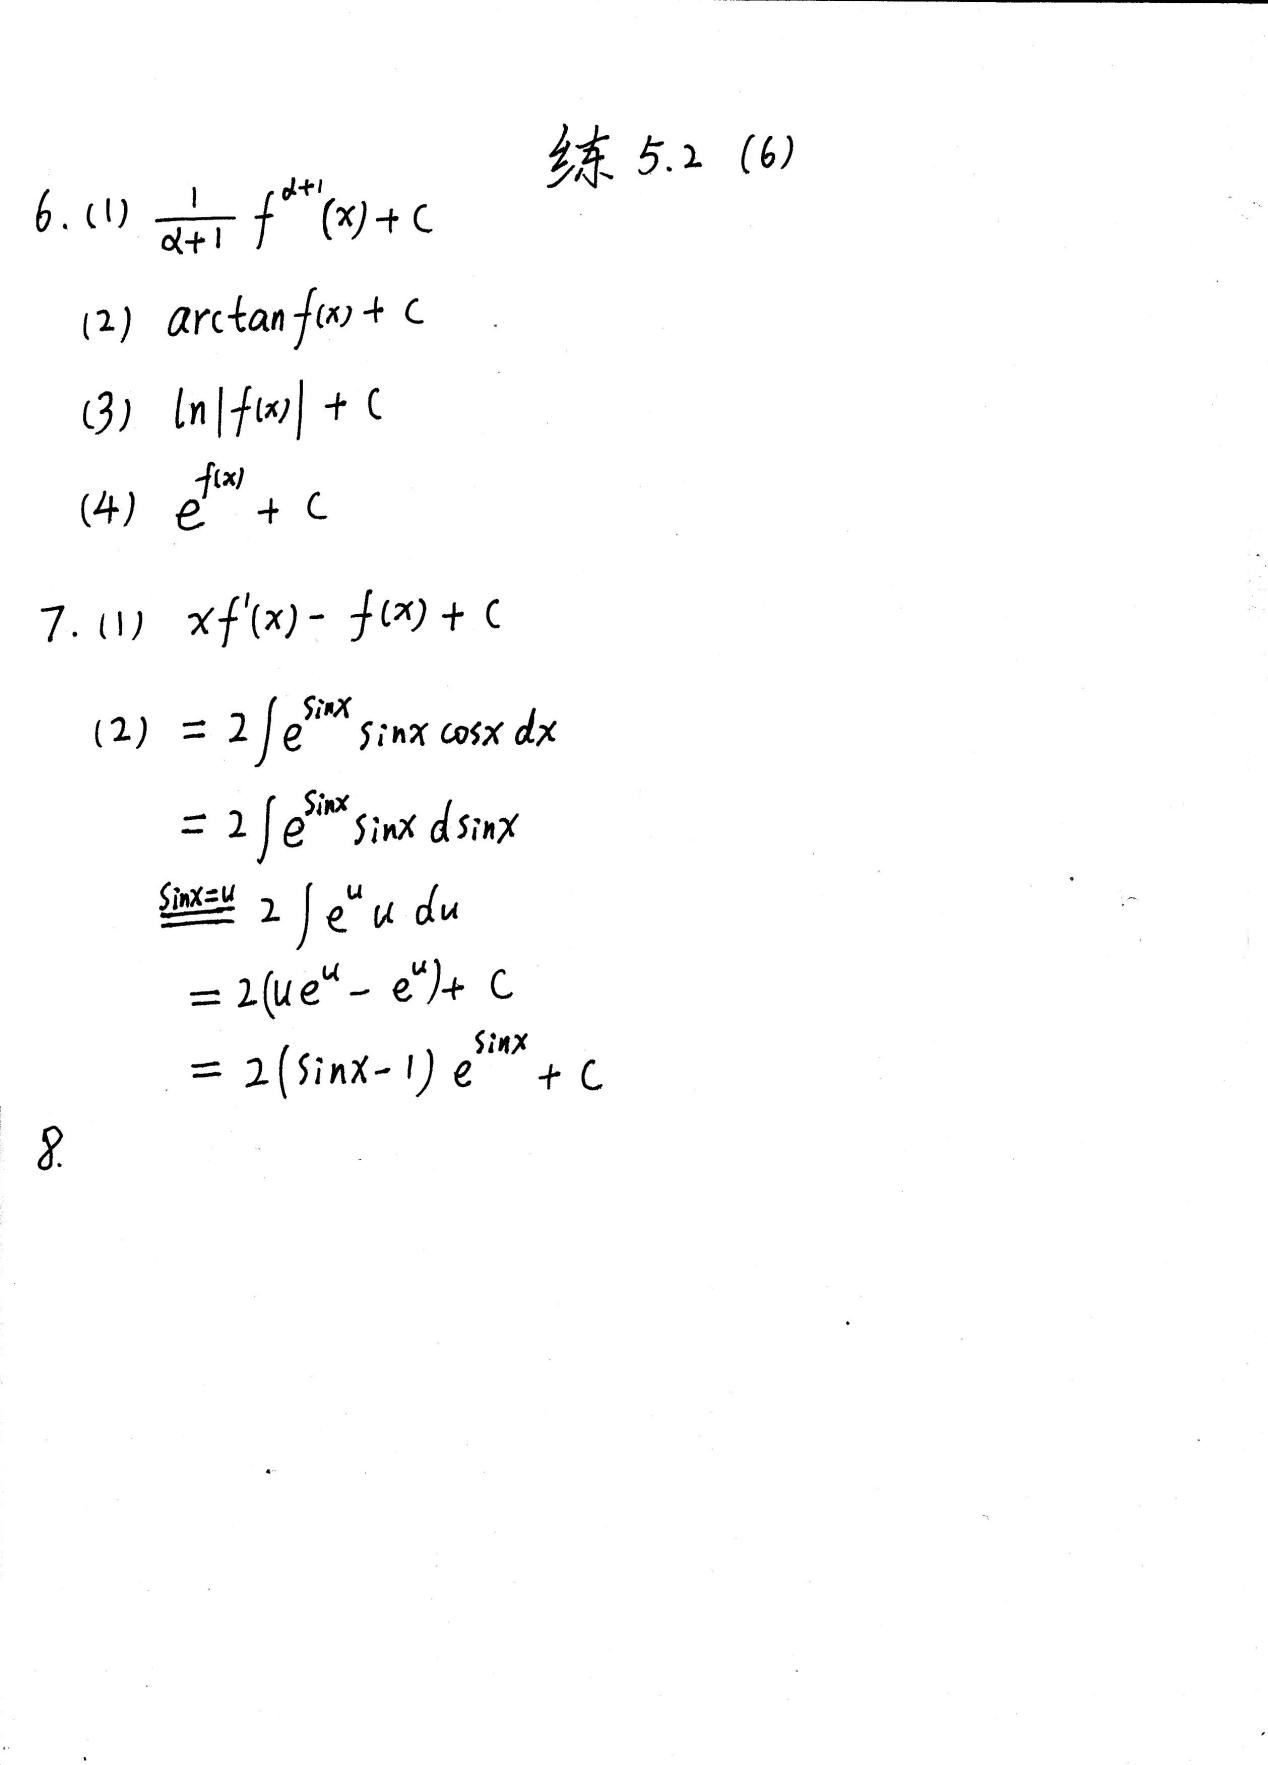 练 5.2 (6)
6. (1) \frac{1}{α+1} f^{α+1}(x) + C
(2) arctan f(x) + C
(3) ln|f(x)| + C
(4) e^{f(x)} + C
7. (1) xf'(x) - f(x) + C
(2) = 2∫e^{sinx} sinx cosx dx
= 2∫e^{sinx} sinx d sinx
\overset{sinx=u}{=} 2∫e^u u du
= 2(ue^u - e^u) + C
= 2(sinx-1) e^{sinx} + C
8.